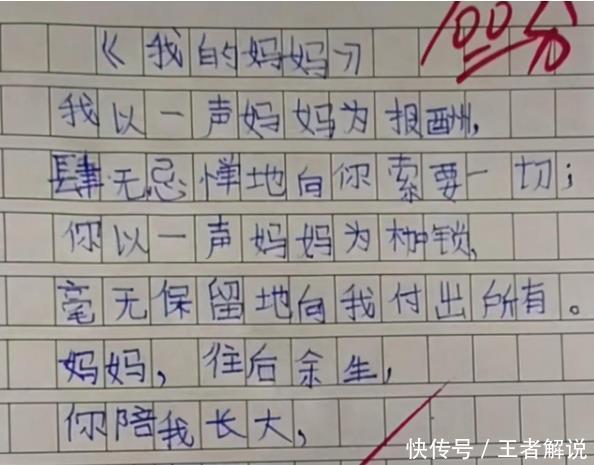 《我的妈妈》
100分
我以一声妈妈为报酬,
肆无忌惮地向你索要一切;
你以一声妈妈为枷锁,
毫无保留地向我付出所有。
妈妈,往后余生,
你陪我长大,
快传号/王者解说